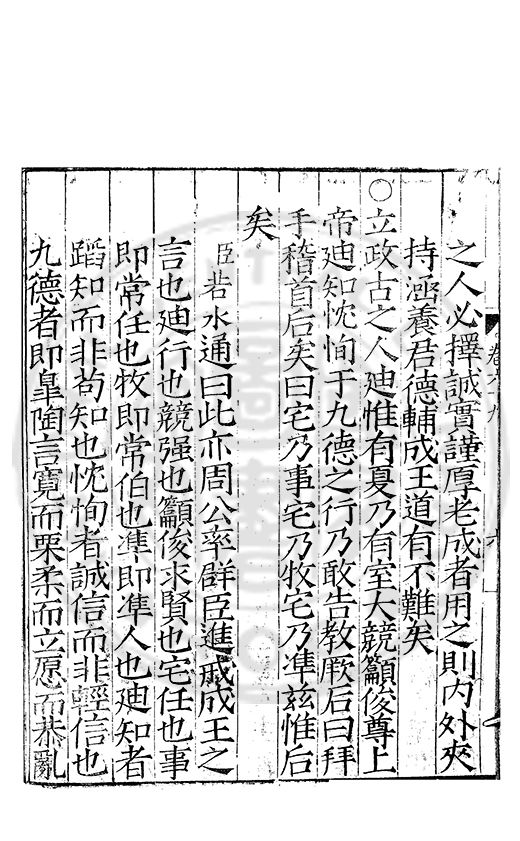 之人必擇誠實謹厚老成者用之則内外夾
持涵養君德輔成王道有不難矣
○立政古之人廸惟有夏乃有室大競籲俊尊上
帝廸知忱恂于九德之行乃敢告教厥后曰拜
手稽首后矣曰宅乃事宅乃牧宅乃凖兹惟后
矣
臣若水通曰此亦周公率群臣進戒成王之
言也廸行也競强也籲俊求賢也宅任也事
即常任也牧即常伯也凖即凖人也廸知者
蹈知而非苟知也忱恂者誠信而非輕信也
九德者即臯陶言寛而栗柔而立愿而恭亂